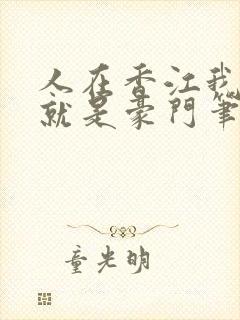 人在香江我
就是豪門筆
童光明